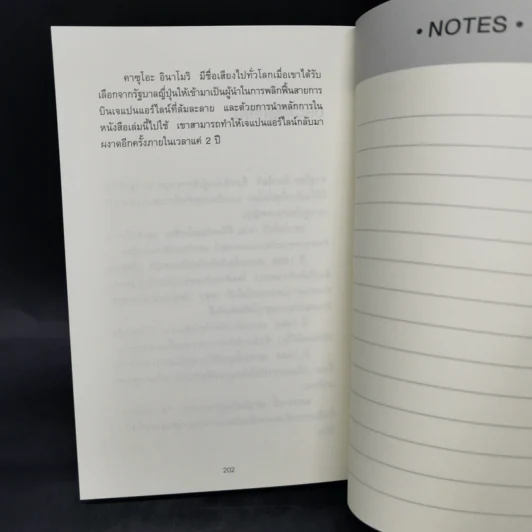 คาซุโอะ อินาโมริ มีชื่อเสียงไปทั่วโลกเมื่อเขาได้รับ
เลือกจากรัฐบาลญี่ปุ่นให้เข้ามาเป็นผู้นำในการพลิกฟื้นสายการ
บินเจแปนแอร์ไลน์ที่ล้มละลาย และด้วยการนำหลักการใน
หนังสือเล่มนี้ไปใช้ เขาสามารถทำให้เจแปนแอร์ไลน์กลับมา
ผงาดอีกครั้งภายในเวลาแค่ 2 ปี
202
• NOTES •